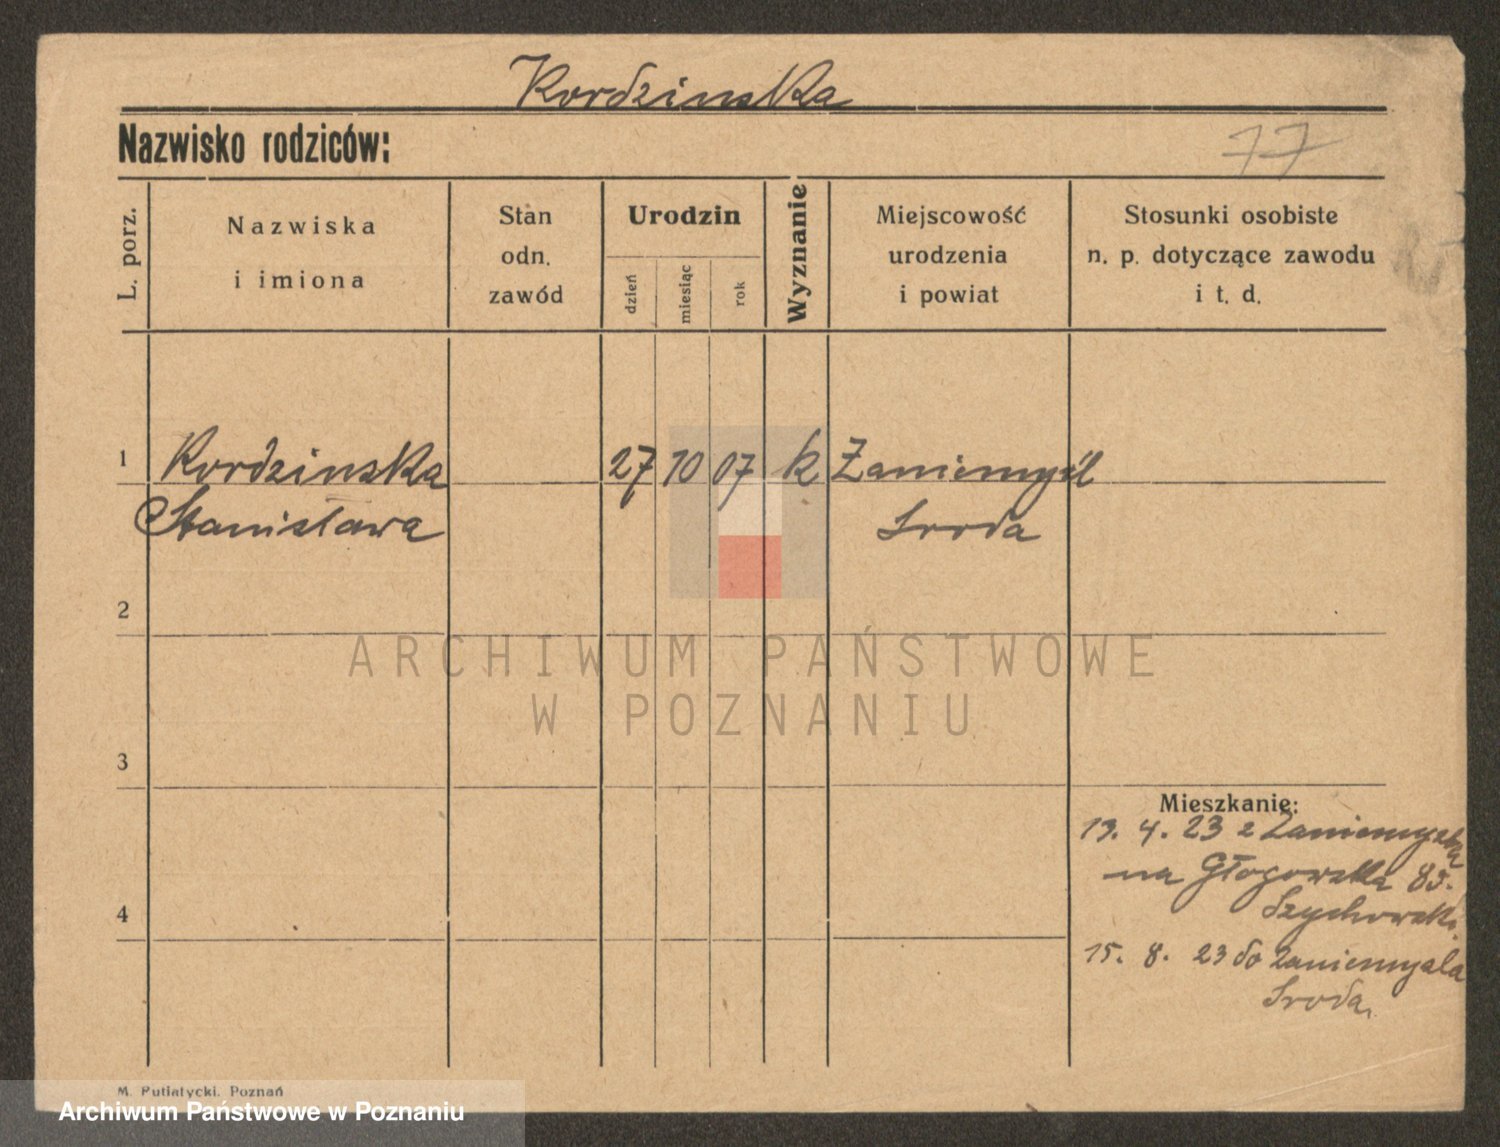 Kordzinska
Nazwisko rodziców:
77
L. porz.
Nazwiska
i imiona
Stan
odn.
zawód
Urodzin
dzień
miesiąc
rok
Wyznanie
Miejscowość
urodzenia
i powiat
Stosunki osobiste
n. p. dotyczące zawodu
i t. d.
1 Kordzinska 27 10 07 k Zaniemyśl
Stanisława Sroda
2
ARCHIWUM PAŃSTWOWE
W POZNANIU
3
Mieszkanie:
13. 4. 23 z
na Głogowska 85.
Szychowski.
4
15. 8. 23 do Zaniemysla
Sroda.
M. Putiatycki. Poznań
Archiwum Państwowe w Poznaniu